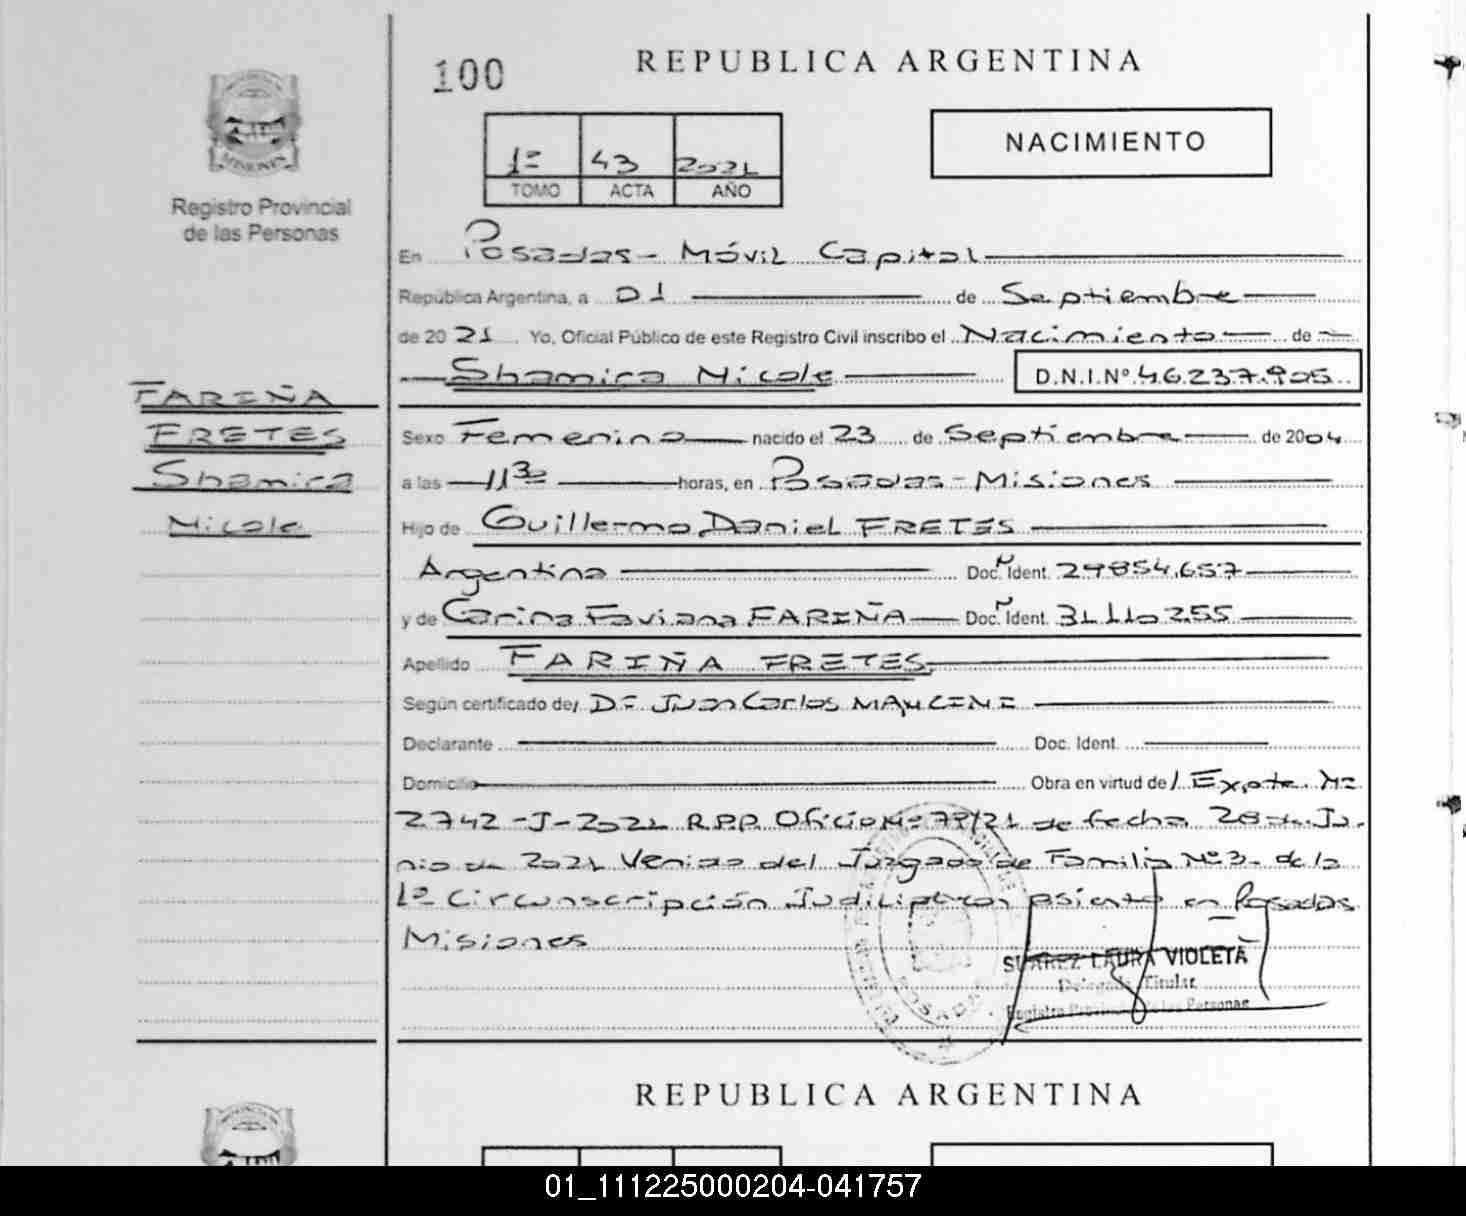 100
REPUBLICA ARGENTINA
NACIMIENTO
1º 43 2021
TOMO ACTA AÑO
MISIONES
Registro Provincial
de las Personas
En Posadas - Móvil Capital
República Argentina, a 01 de Septiembre
de 2021 Yo, Oficial Público de este Registro Civil inscribo el Nacimiento de
Shamira Nicole D.N.I.Nº 46.237.905
FARIÑA
FRETES
Shamira
Nicole
Sexo Femenino nacido el 23 de Septiembre de 2004
a las 11 30 horas, en Posadas - Misiones
Hijo de Guillermo Daniel FRETES
Argentino Doc. Ident. 29854.657
y de Carina Faviana FARIÑA Doc. Ident. 31110255
Apellido FARIÑA FRETES
Según certificado de/ Dr Juan Carlos
Declarante Doc. Ident.
Domicilio Obra en virtud de/ Expte. Nº
2742-J-2021 R.P.P. Oficio Nº 79/21 de fecha 28 de Ju-
nio de 2021 Venido del Juzgado de Familia Nº3- de la
1º Circunscripción asiento en Posadas
Misiones
SUAREZ LAURA VIOLETA
Delegada Titular
Registro Provincial de las Personas
POSADAS
REPUBLICA ARGENTINA
01_111225000204-041757